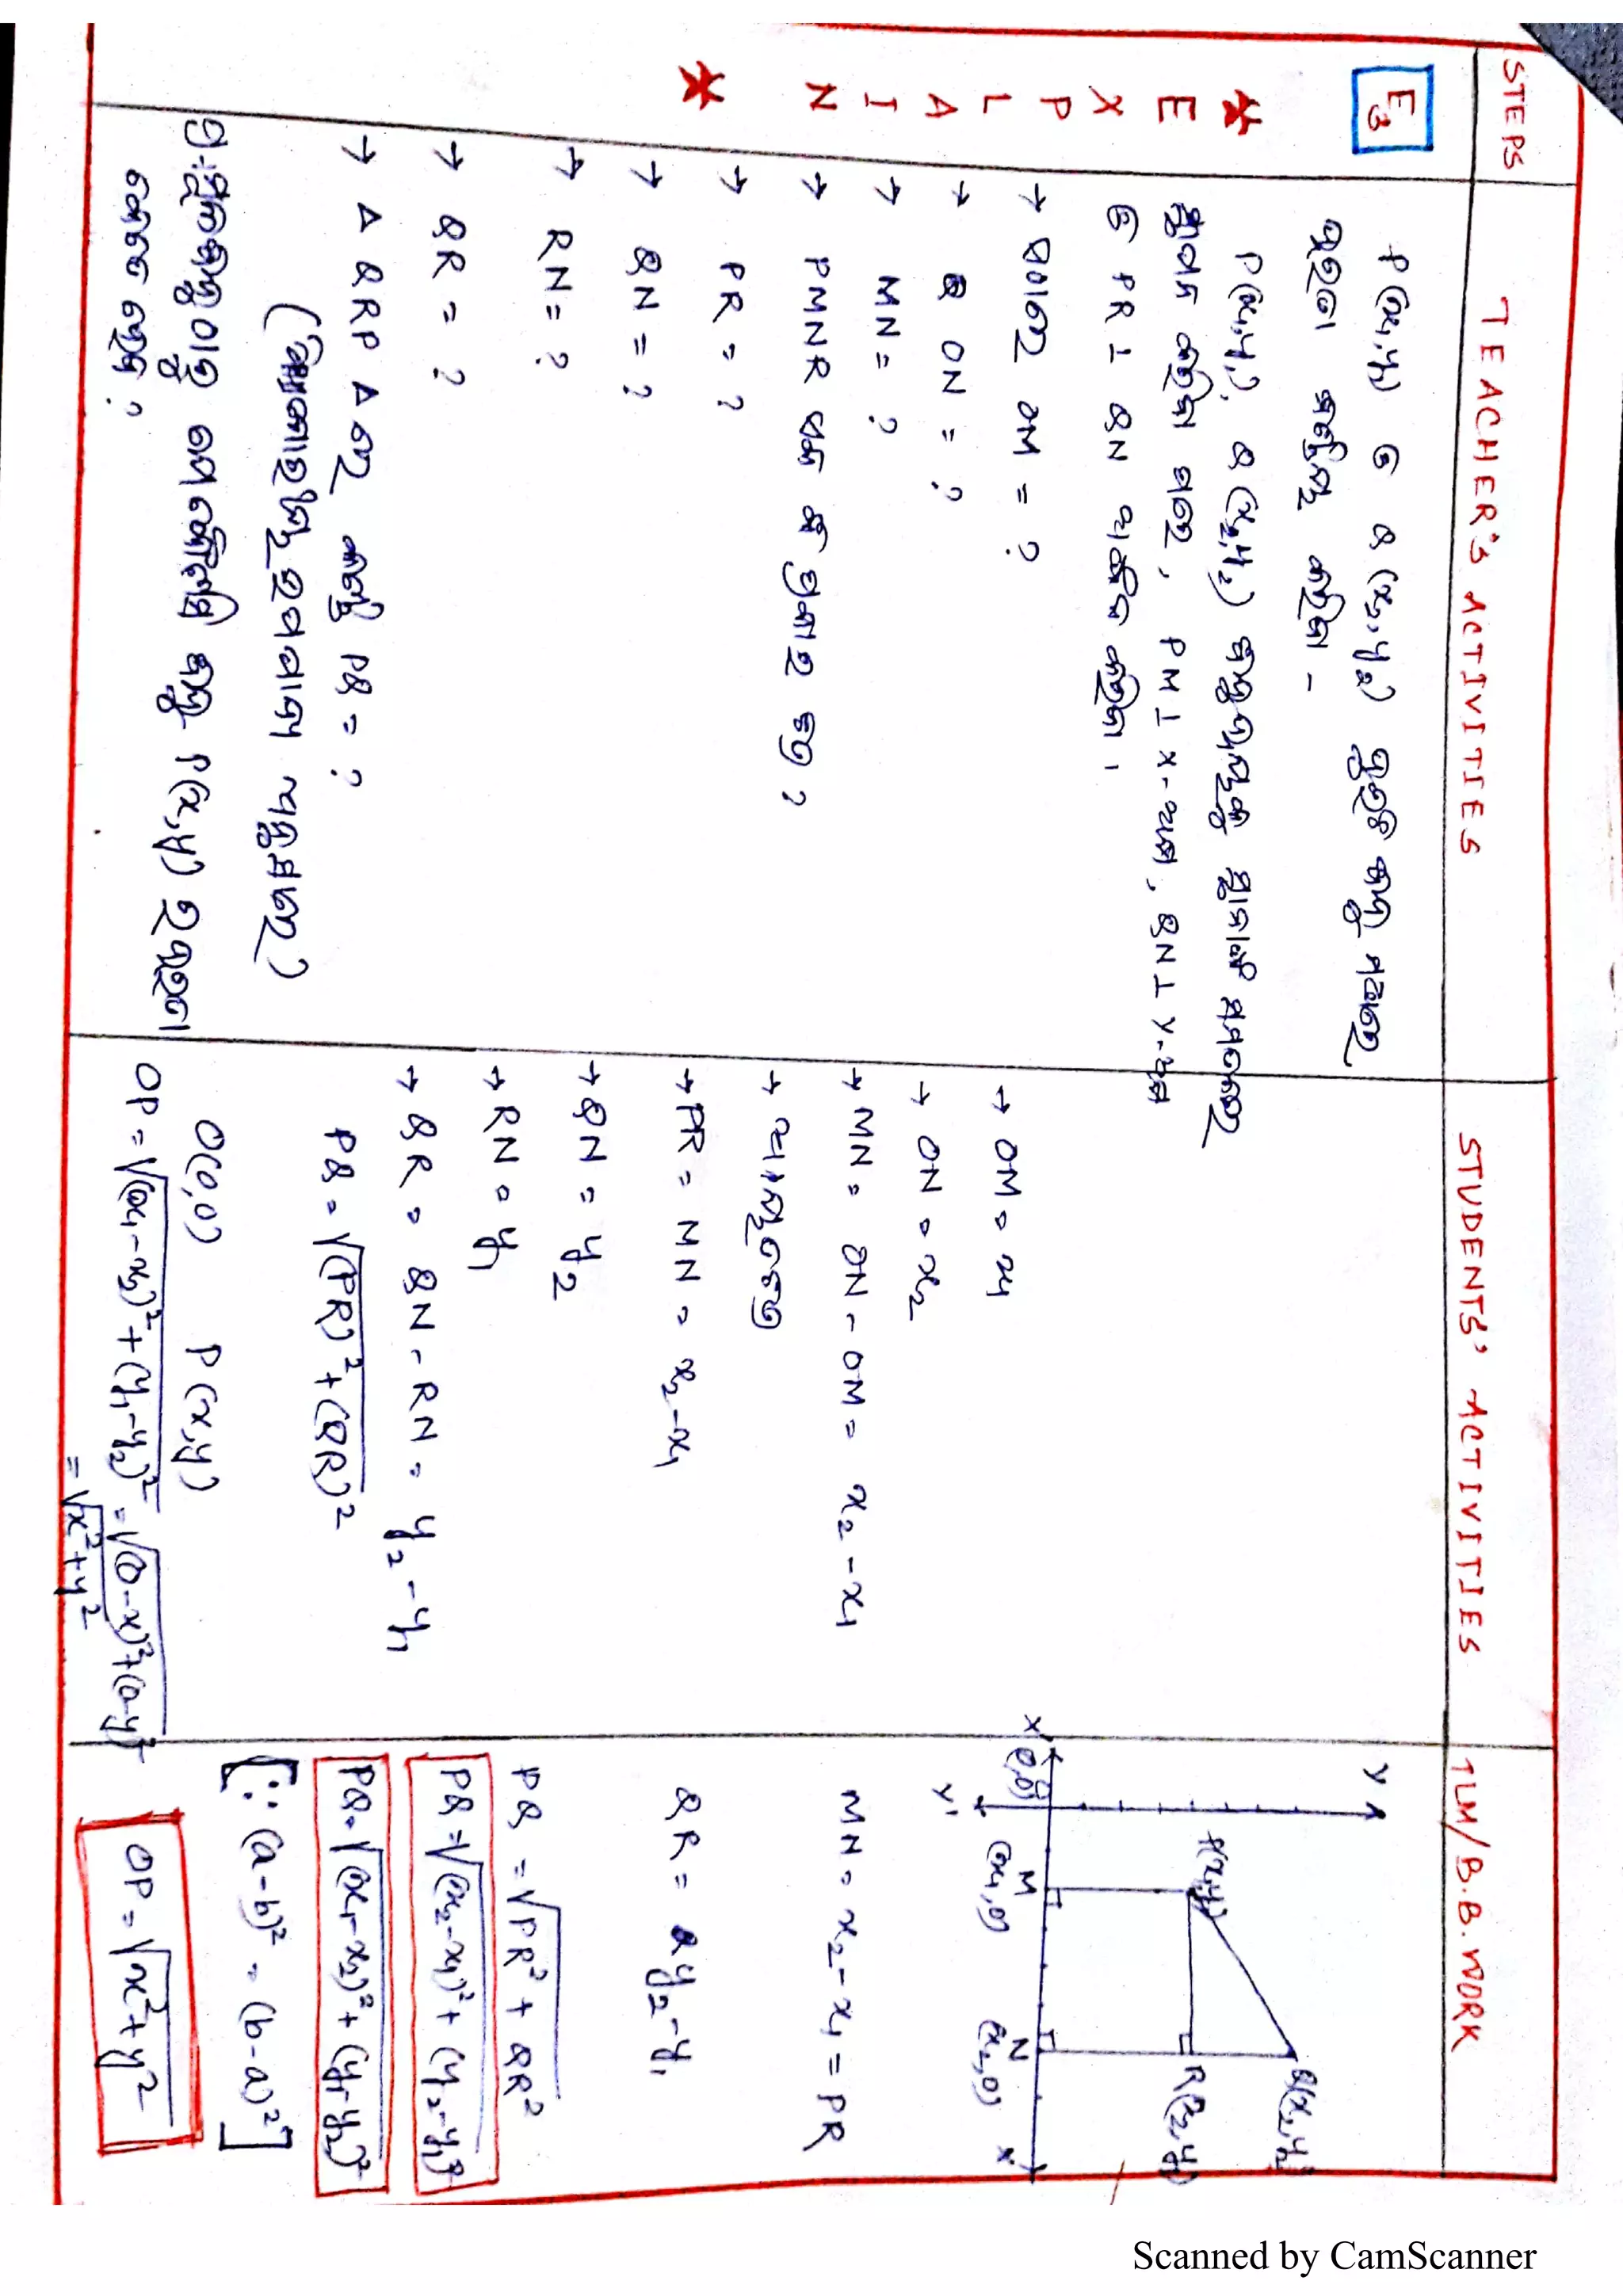 STEPS
TEACHER'S ACTIVITIES
STUDENTS' ACTIVITIES
TLM/B.B. WORK
E3
* EXPLAIN *
P(x₁,y₁) ଓ Q(x₂,y₂) ଦୁଇଟି ବିନ୍ଦୁ ମଧ୍ୟରେ
ଦୂରତା ନିର୍ଣ୍ଣୟ କରିବା -
P(x₁,y₁), Q(x₂,y₂) ବିନ୍ଦୁଦ୍ୱୟକୁ ସ୍ଥାନାଙ୍କ ସମତଳରେ
ସ୍ଥାପନ କରିବା ପରେ, PM ⊥ X-ଅକ୍ଷ, QN ⊥ X-ଅକ୍ଷ
ଓ PR ⊥ QN ଅଙ୍କନ କରିବା।
→ ଏଠାରେ OM = ?
→ ON = ?
→ MN = ?
→ PMNR ଏକ କି ପ୍ରକାର ଚିତ୍ର ?
→ PR = ?
→ QN = ?
→ RN = ?
→ QR = ?
→ Δ QRP Δ ରେ PQ = ?
(ପିଥାଗୋରାସଙ୍କ ଉପପାଦ୍ୟ ଅନୁସାରେ)
ପ୍ର. ମୂଳବିନ୍ଦୁ ଠାରୁ ଯେ କୌଣସି ବିନ୍ଦୁ P(x,y) ର ଦୂରତା
କେତେ ହେବ ?
→ OM = x₁
→ ON = x₂
→ MN = ON - OM = x₂ - x₁
→ ଆୟତଚିତ୍ର
→ PR = MN = x₂ - x₁
→ QN = y₂
→ RN = y₁
→ QR = QN - RN = y₂ - y₁
PQ = √(PR)² + (QR)²
O(0,0) P(x,y)
OP = √(x₁-x₂)² + (y₁-y₂)² = √(0-x)² + (0-y)²
= √x² + y²
Y
P(x₁,y₁)
Q(x₂,y₂)
R(x₂,y₁)
X'
(0,0)
Y'
M
(x₁,0)
N
(x₂,0)
X
MN = x₂ - x₁ = PR
QR = y₂ - y₁
PQ = √PR² + QR²
PQ = √(x₂-x₁)² + (y₂-y₁)²
PQ = √(x₁-x₂)² + (y₁-y₂)²
[∵ (a-b)² = (b-a)²]
OP = √x² + y²
Scanned by CamScanner